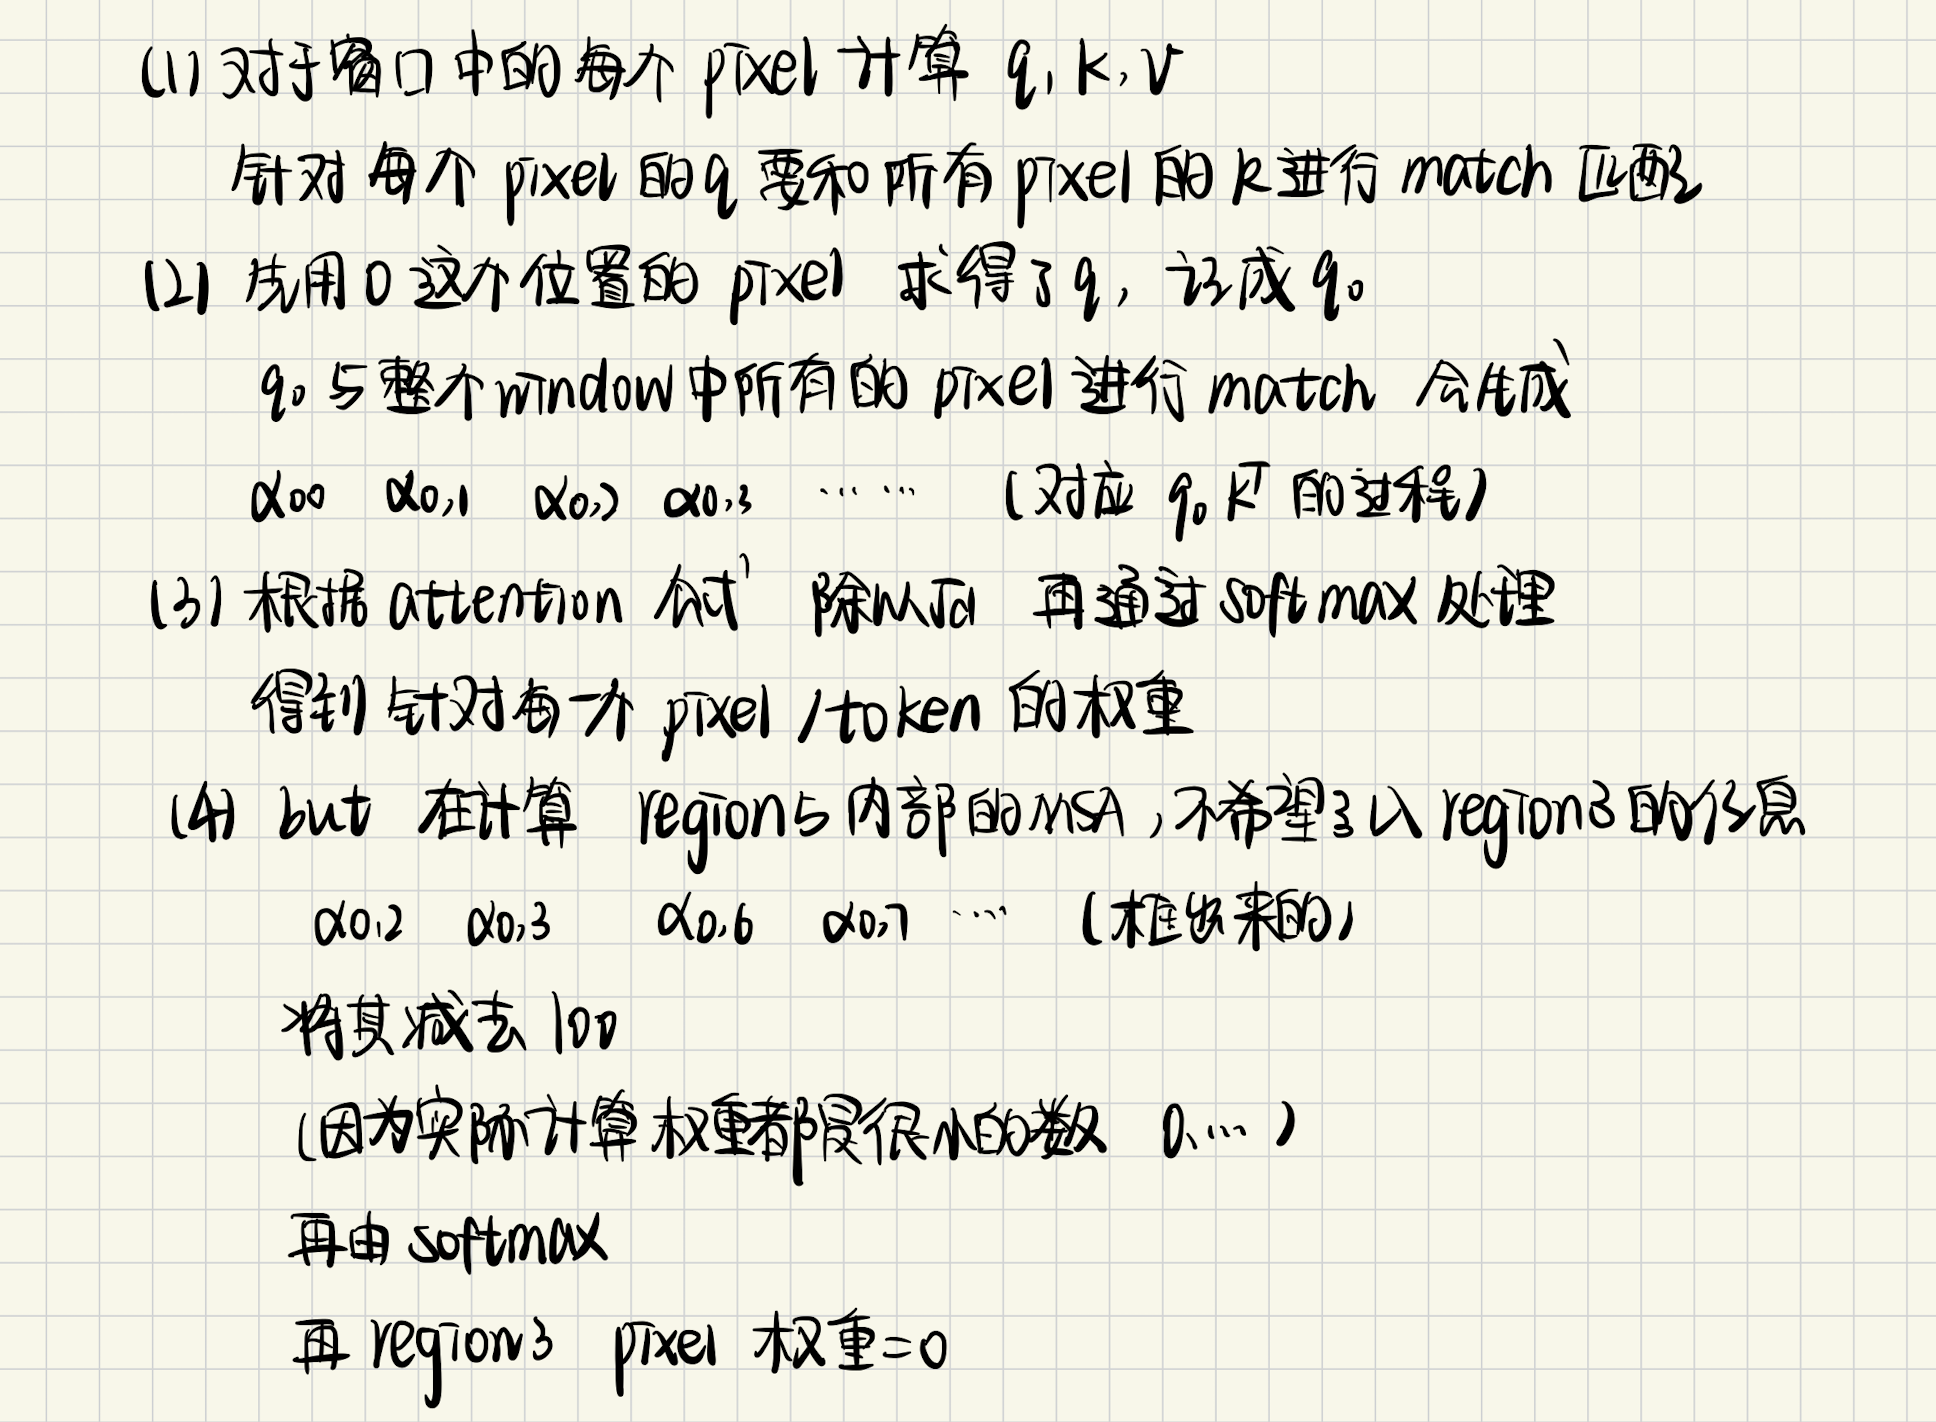 (1) 对于窗口中的每个 pixel 计算 q, k, v
针对 每个 pixel 的q 要和 所有 pixel 的 k 进行 match 匹配
(2) 先用 0 这个位置的 pixel 求得了 q, 记成 q₀
q₀ 与整个window中所有的 pixel 进行 match 会生成
α0,0 α0,1 α0,2 α0,3 …… (对应 q₀ kᵀ 的过程)
(3) 根据 attention 公式 除以√d 再通过 softmax 处理
得到 针对每一个 pixel /token 的权重
(4) but 在计算 region5 内部的 MSA, 不希望引入 region3 的信息
α0,2 α0,3 α0,6 α0,7 … (框出来的)
将其减去 100
(因为实际计算 权重都是很小的数 0.…)
再由 softmax
再 region3 pixel 权重=0